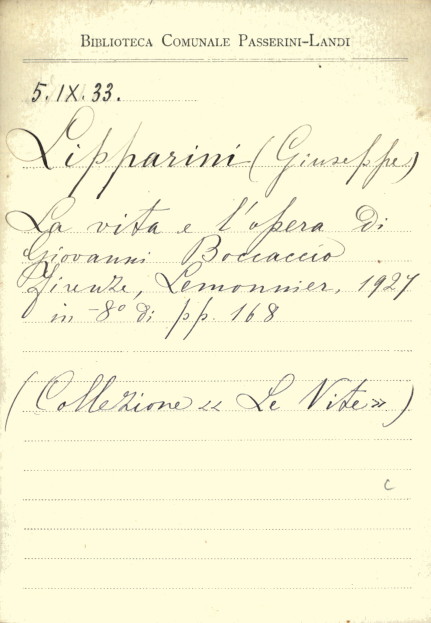 BIBLIOTECA COMUNALE PASSERINI-LANDI
5. IX. 33.
Lipparini (Giuseppe)
La vita e l'opera di
Giovanni Boccaccio
Firenze, Lemonnier, 1927
in-8º di pp. 168
(Collezione « Le Vite»)
c